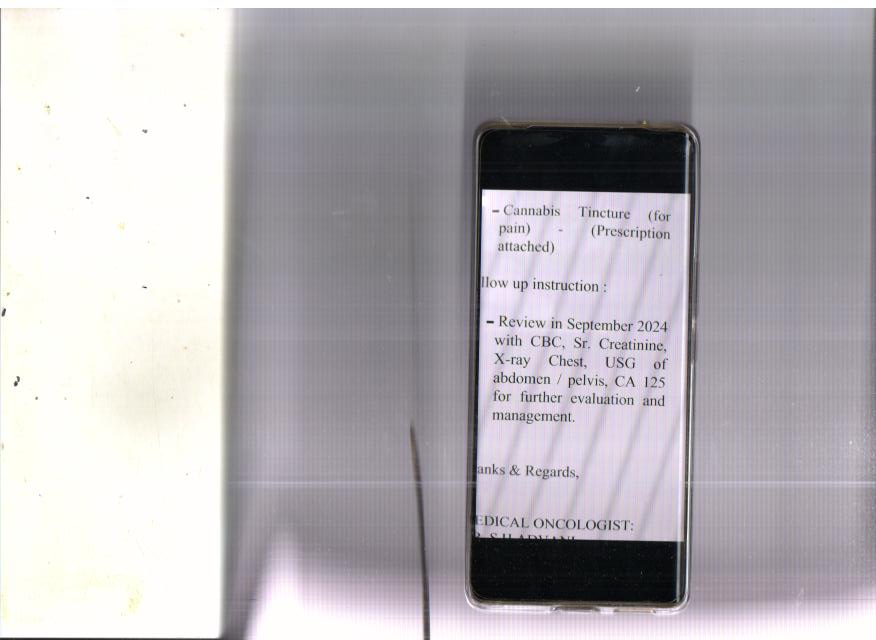 - Cannabis Tincture (for
pain) - (Prescription
attached)
llow up instruction :
- Review in September 2024
with CBC, Sr. Creatinine,
X-ray Chest, USG of
abdomen / pelvis, CA 125
for further evaluation and
management.
anks & Regards,
EDICAL ONCOLOGIST: